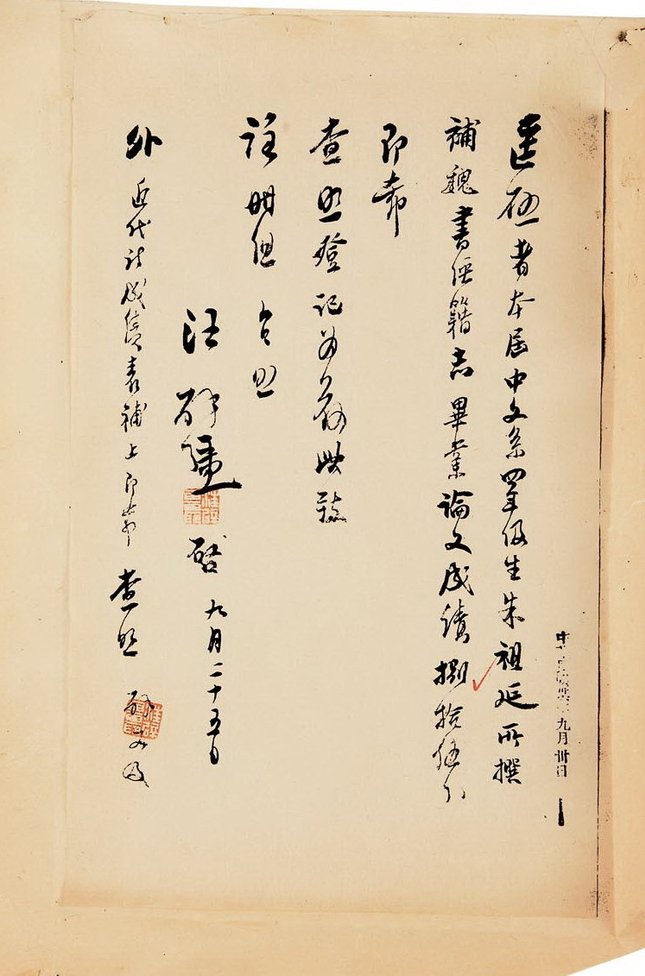 九月卅日
逕啟者本屆中文系四年級生朱祖延所撰
補魏書經籍志畢業論文成績捌拾伍分
即希
查照登記為荷此致
註冊組台照
汪辟疆啟九月二十五日
外近代詩成績表補上即希查照 又及